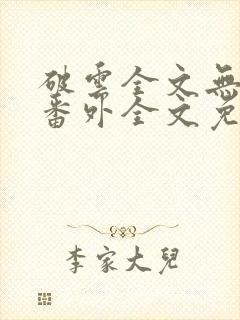 破雲全文無
番外全文免
李家大兒